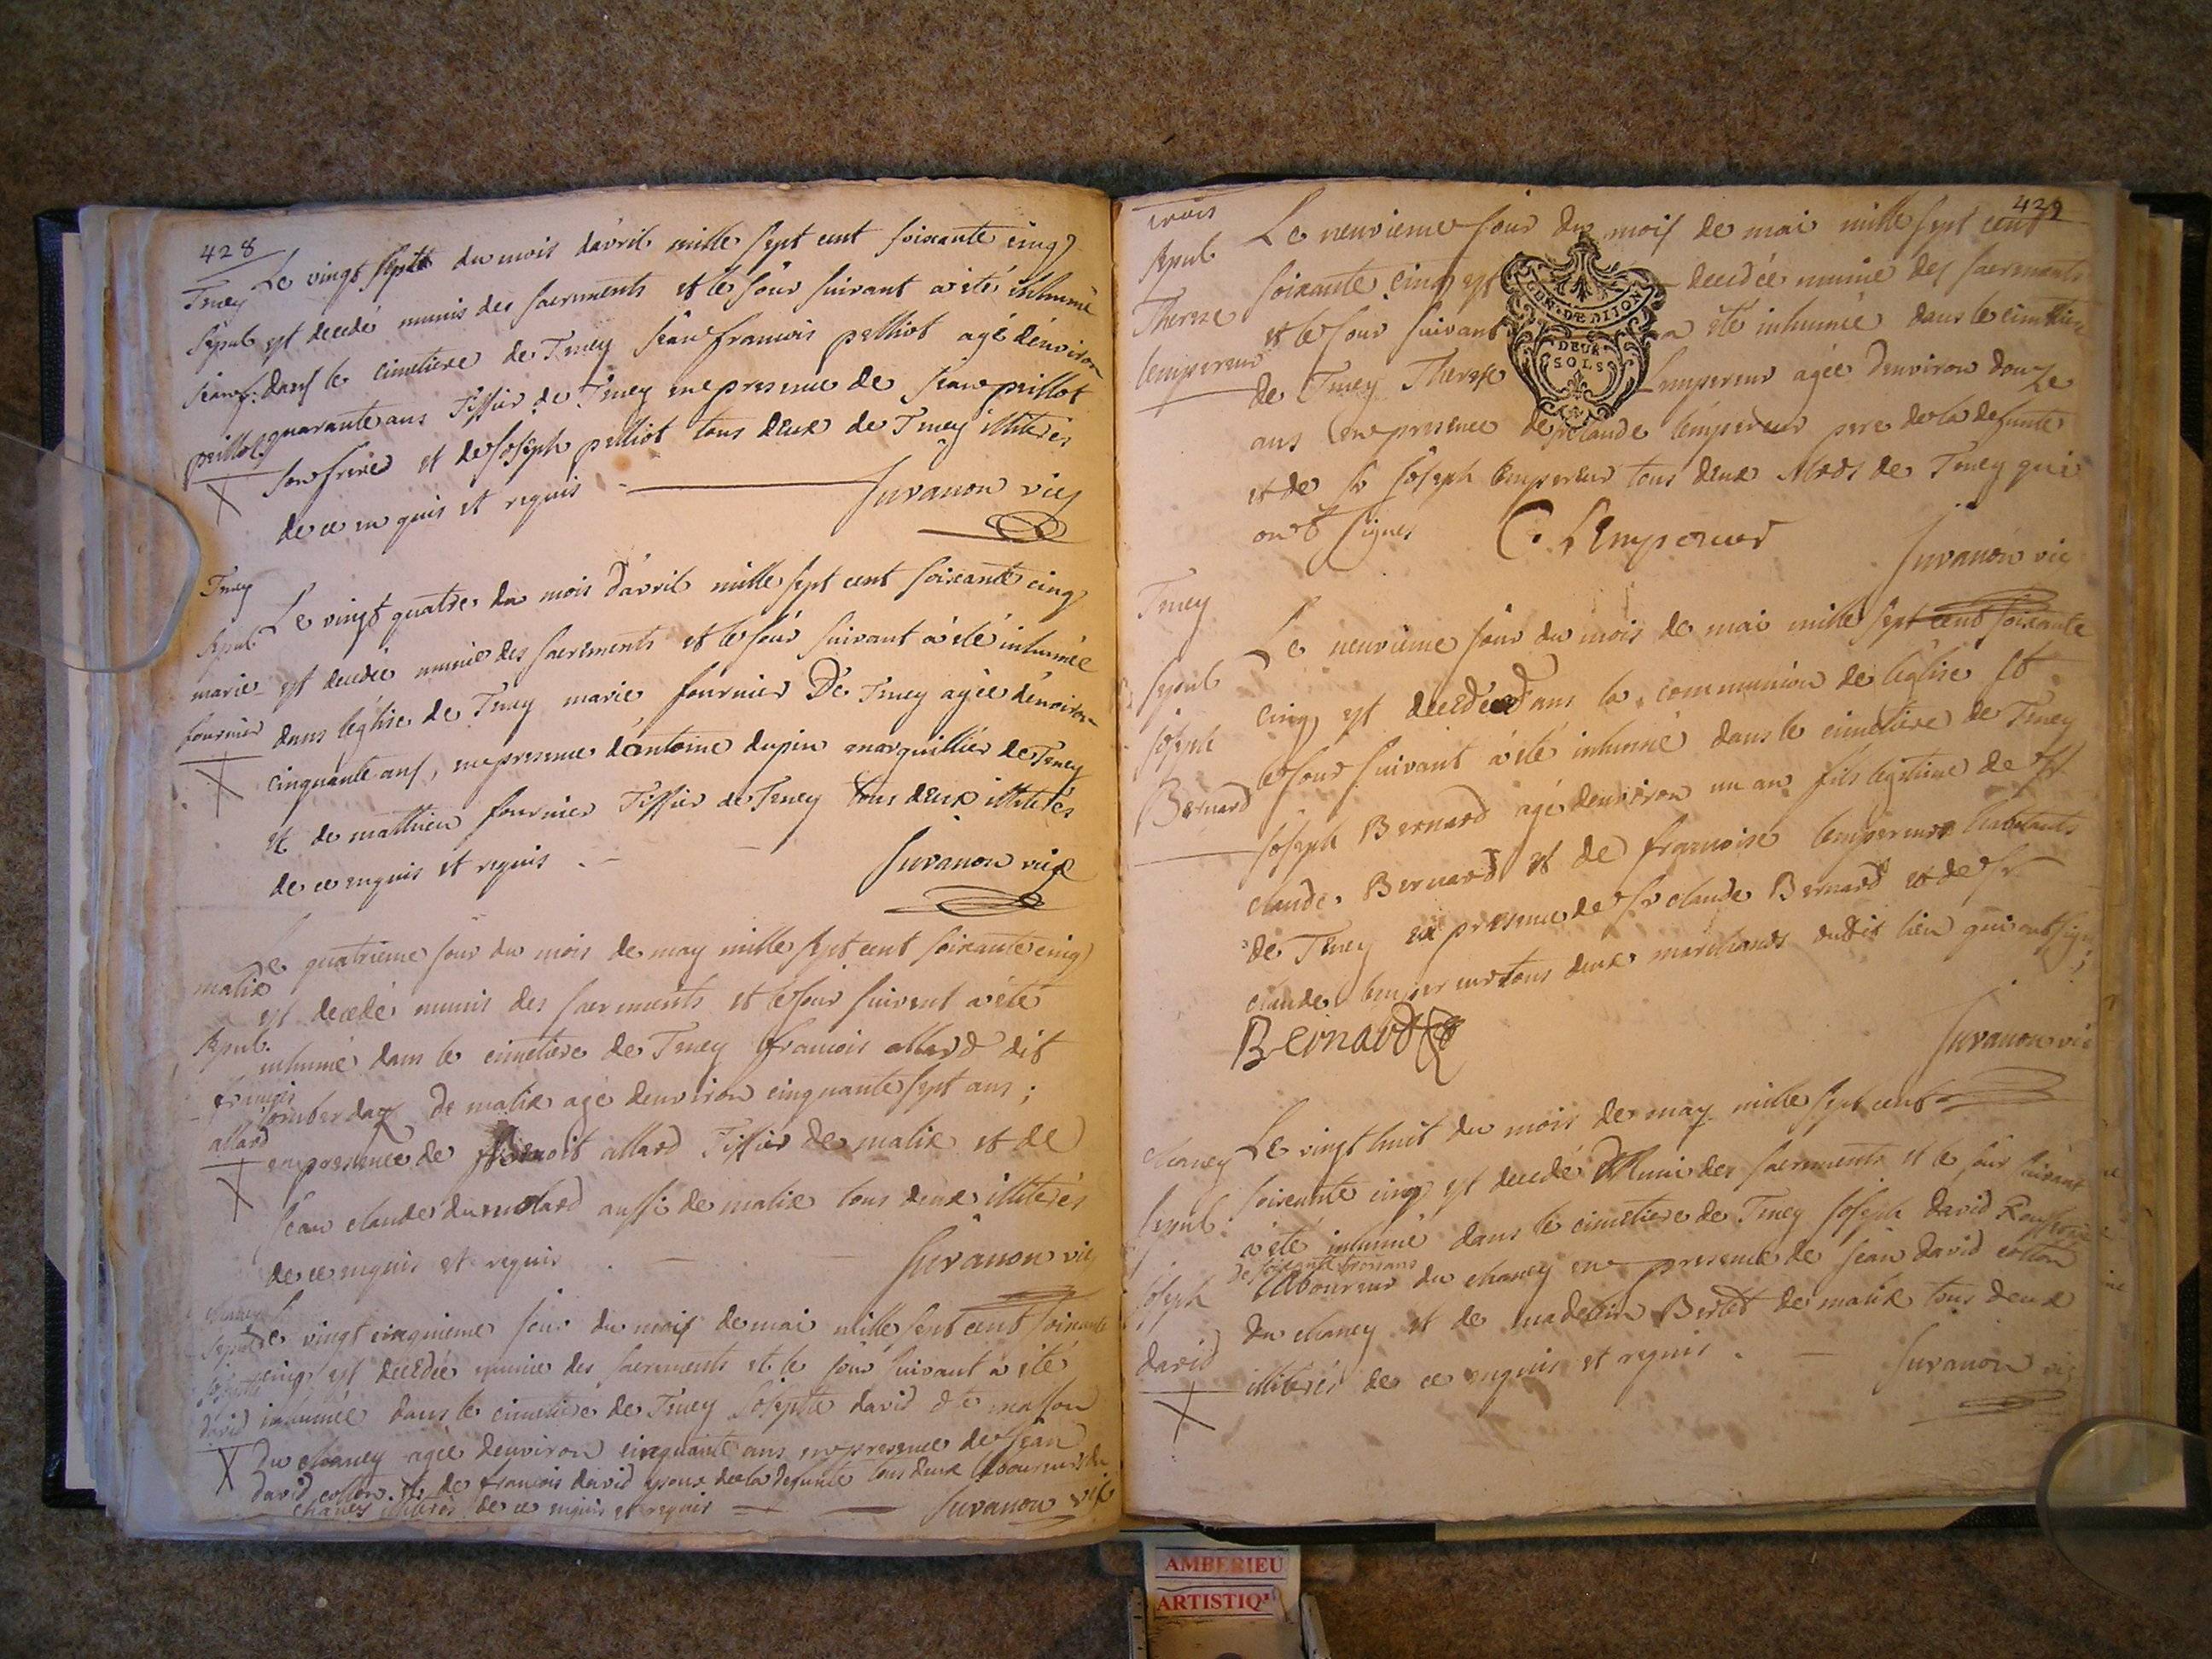 428
Le vingt sept du mois davril mille sept cent soixante cinq
Teney
Sepul est decedé munis des sacrements et le jour suivant a été inhumé
jean f: dans le cimetiere de Teney jean francois pelliot agé denviron
peillot quarante ans Tissier de Teney en presence de jean peillot
son frere et de joseph pelliot tous deux de Teney illiterés
de ce enquis et requis
Juvanon vic
Teney
Le vingt quatre du mois d'avril mille sept cent soixante cinq
Sepul
marie est decedée munie des sacrements et le jour suivant a été inhumée
fournier dans leglise de Teney marie fournier De Teney agée denviron
cinquante ans, en presence dantoine dupin marguillier de Teney
et de mathieu fournier Tissier de Teney tous deux illiterés
de ce enquis et requis
Juvanon vic
Le quatrieme jour du mois de may mille sept cent soixante cinq
malix
est decedé munis des sacrements et le jour suivent a été
Sepul.
inhumé dans le cimetiere de Teney francois allard dit
francois
allard
de malix agé denviron cinquante sept ans;
en presence de Benoit allard Tissier de malix et de
jean claude dumolard aussi de malix tous deux illiterés
de ce enquis et requis
Juvanon vic
chaney
Sepul Le vingt cinquieme jour du mois de mai mille sept cent soixante
cinq est decedée munie des sacrements et le jour suivant a été
josephte
david inhumée dans le cimetiere de Teney josephte david dte mason
du chaney agée denviron cinquante ans en presence de jean
david cotton et de francois david epoux de la defunte tous deux laboureurs du
chaney illiterés de ce enquis et requis
Juvanon vic
429
Le neuvieme jour du mois de mai mille sept cent
Sepul
soixante cinq est decedée munie des sacrements
Therese et le jour suivant a été inhumée dans le cimetiere
lempereur
de Teney Therese Lempereur agée denviron douze
ans en presence de claude lempereur pere de la defunte
et de sr joseph lempereur tous deux Mrds de Teney qui
ont signes C. LEmpereur
Juvanon vic
GEN. DE DIJON
DEUX
SOLS
Teney
Le neuvieme jour du mois de mai mille sept cent soixante
Sepul
cinq est decedé dans la communion de leglise et
joseph
le jour suivant a été inhumé dans le cimetiere de Teney
Bernard
joseph Bernard agé denviron un an fils legitime de sr
claude Bernard et de francoise lempereur habitants
de Teney en presence de sr claude Bernard et de sr
claude lempereur tous deux marchands dudit lieu qui ont signé;
Bernard
Juvanon vic
chaney Le vingt huit du mois de may mille sept cent
Sepul: soixante cinq est decedé Muni des sacrements et le jour suivant
a été inhumé dans le cimetiere de Teney joseph david
de soixante trois ans
joseph laboureur du chaney en presence de jean david cotton
du chaney et de Berlet de malix tous deux
david
illiterés de ce enquis et requis
Juvanon vic
AMBERIEU
ARTISTIQ